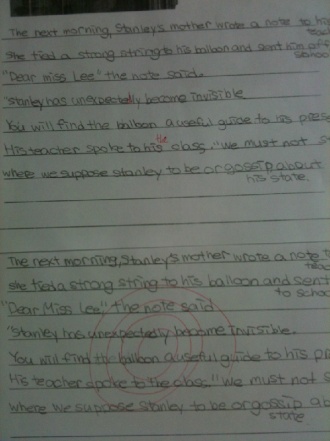 The next morning, Stanley's mother wrote a note to his
teach
she tied a strong string to his balloon and sent him off
school
"Dear miss Lee" the note said.
"Stanley has unexpectedly become invisible
You will find the balloon a useful guide to his pres
the
His teacher spoke to his class. "we must not s
where we suppose stanley to be or gossip about
his state.
The next morning, Stanley's mother wrote a note
she tied a strong string to his balloon and sent
to scho
"Dear Miss Lee" the note said
"Stanley has unexpectedly become invisible.
You will find the balloon a useful guide to his pr
His teacher spoke to the class. "we must not s
where we suppose Stanley to be or gossip ab
state